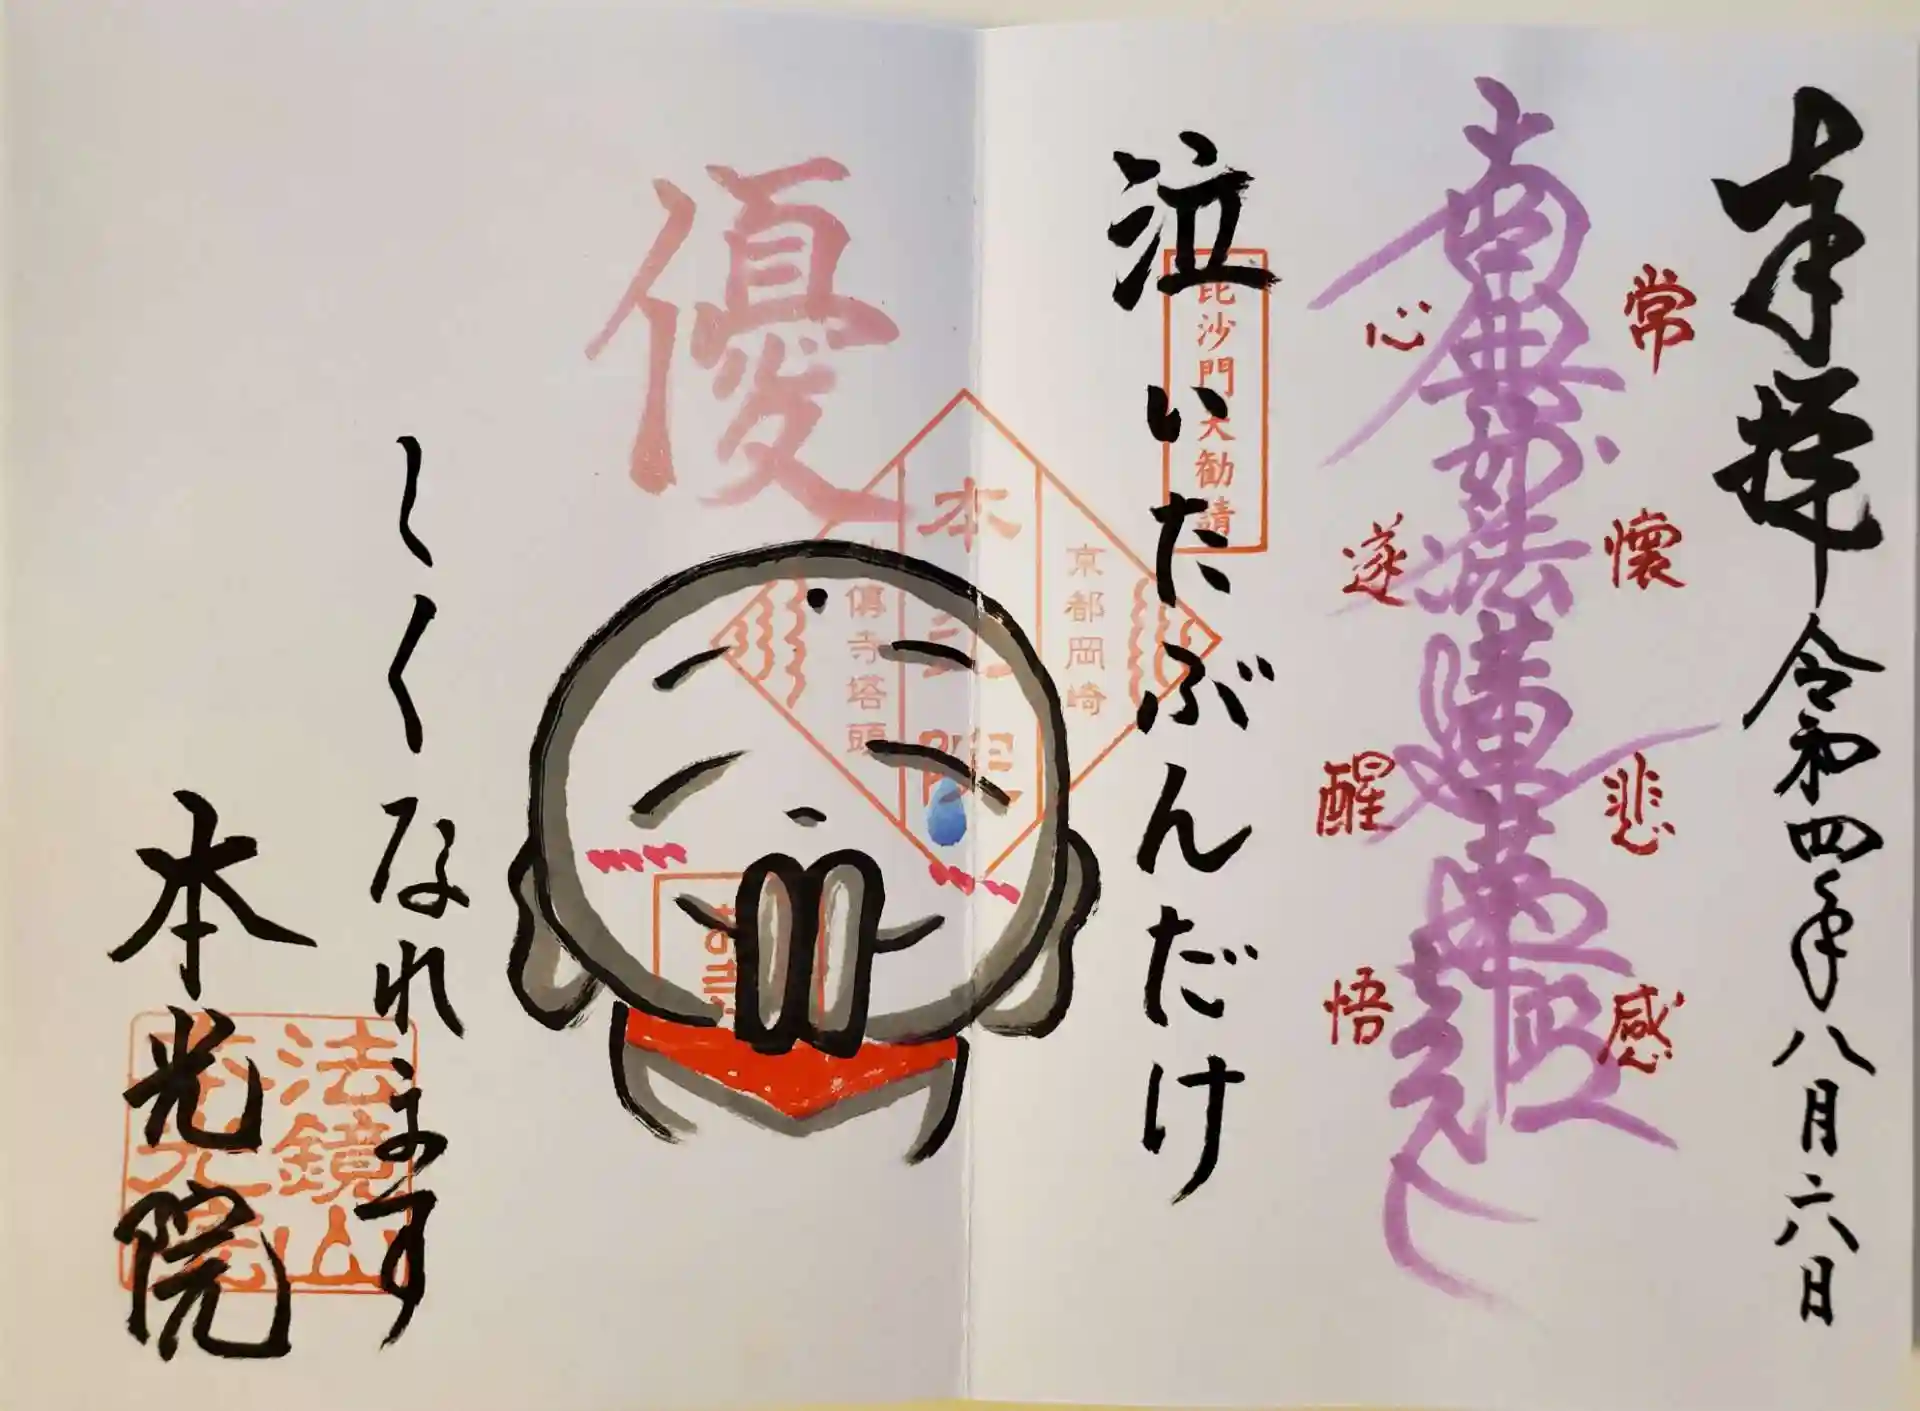 奉拝 令和四年八月六日
常懐悲感
南無妙法蓮華経
心遂醒悟
毘沙門天勧請
泣いたぶんだけ
京都岡崎
本光院
傳寺塔頭
優
しくなれます
法鏡山
本光院
本光院